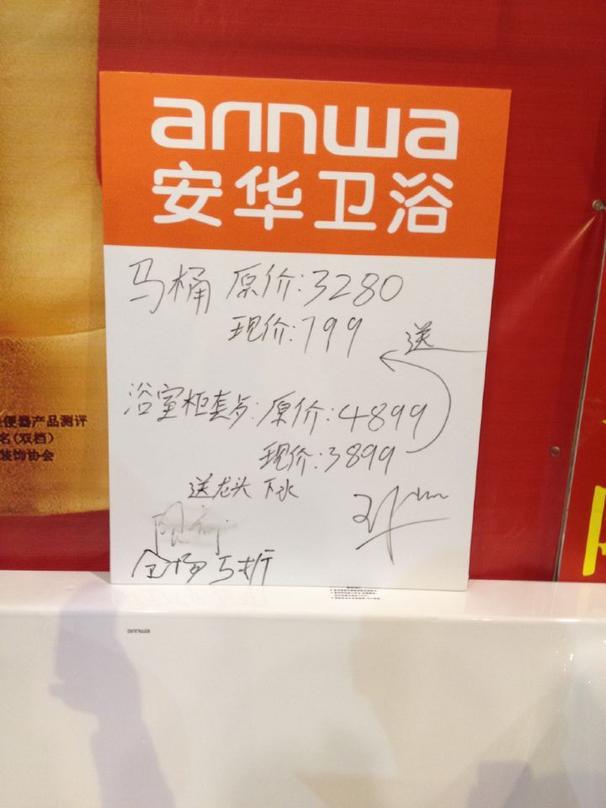 annwa
安华卫浴
马桶 原价:3280
现价:799
送
浴室柜套餐:原价:4899
现价:3899
送龙头 下水
全场5折
便器产品测评
名(双档)
装饰协会
annwa